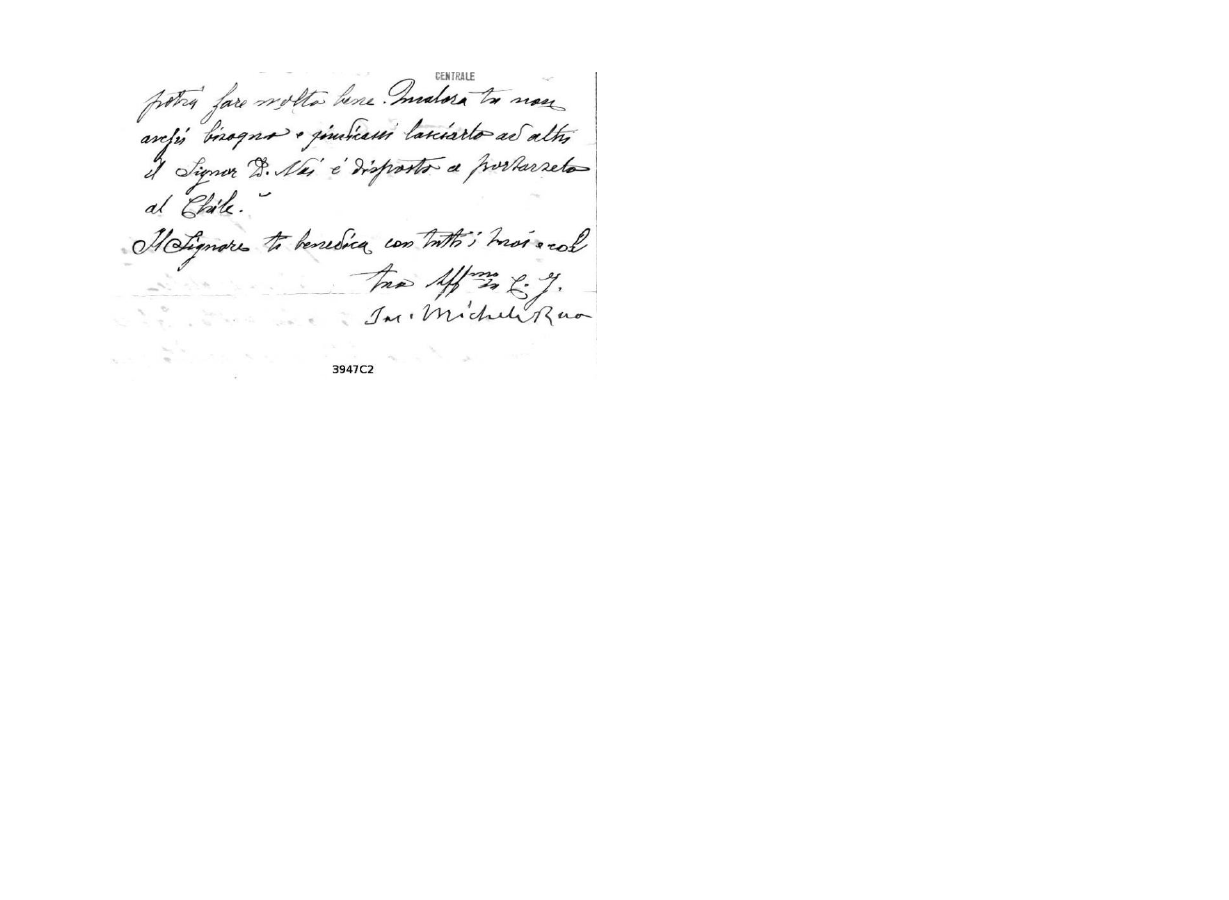 CENTRALE
potrà fare molto bene. Qualora tu non
avessi bisogno e giudicassi lasciarlo ad altri
il Signor D. Nai è disposto a portarselo
al Chilì.
Il Signore te benedica con tutti i tuoi e col
tuo Aff.mo in C. J.
Sac. Michele Rua
3947C2